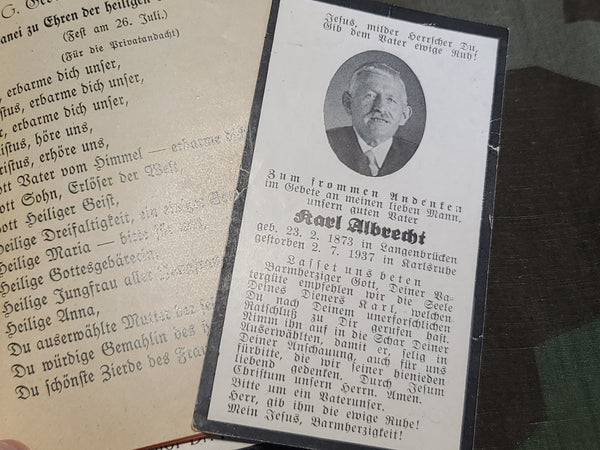 G.
anei zu Ehren der heiligen
(Fest am 26. Juli.)
(Für die Privatandacht)
, erbarme dich unser,
stus, erbarme dich unser,
r, erbarme dich unser,
istus, höre uns,
ristus, erhöre uns,
ott Vater vom Himmel — erbarme dich
ott Sohn, Erlöser der Welt,
ott Heiliger Geist,
Heilige Dreifaltigkeit, ein
Heilige Maria — bitte
Heilige Gottesgebärerin,
Heilige Jungfrau aller
Heilige Anna,
Du auserwählte Mutter der
Du würdige Gemahlin des
Du schönste Zierde des
Jesus, milder Herrscher Du,
Gib dem Vater ewige Ruh!
Zum frommen Andenken
im Gebete an meinen lieben Mann,
unsern guten Vater
Karl Albrecht
geb. 23. 2. 1873 in Langenbrücken
gestorben 2. 7. 1937 in Karlsruhe
Lasset uns beten
Barmherziger Gott, Deiner Va-
tergüte empfehlen wir die Seele
Deines Dieners Karl, welchen
Du nach Deinem unerforschlichen
Ratschluß zu Dir gerufen hast.
Nimm ihn auf in die Schar Deiner
Auserwählten, damit er, selig in
Deiner Anschauung, auch für uns
fürbitte, die wir seiner hienieden
liebend gedenken. Durch Jesum
Christum unsern Herrn. Amen.
Bitte um ein Vaterunser.
Herr, gib ihm die ewige Ruhe!
Mein Jesus, Barmherzigkeit!